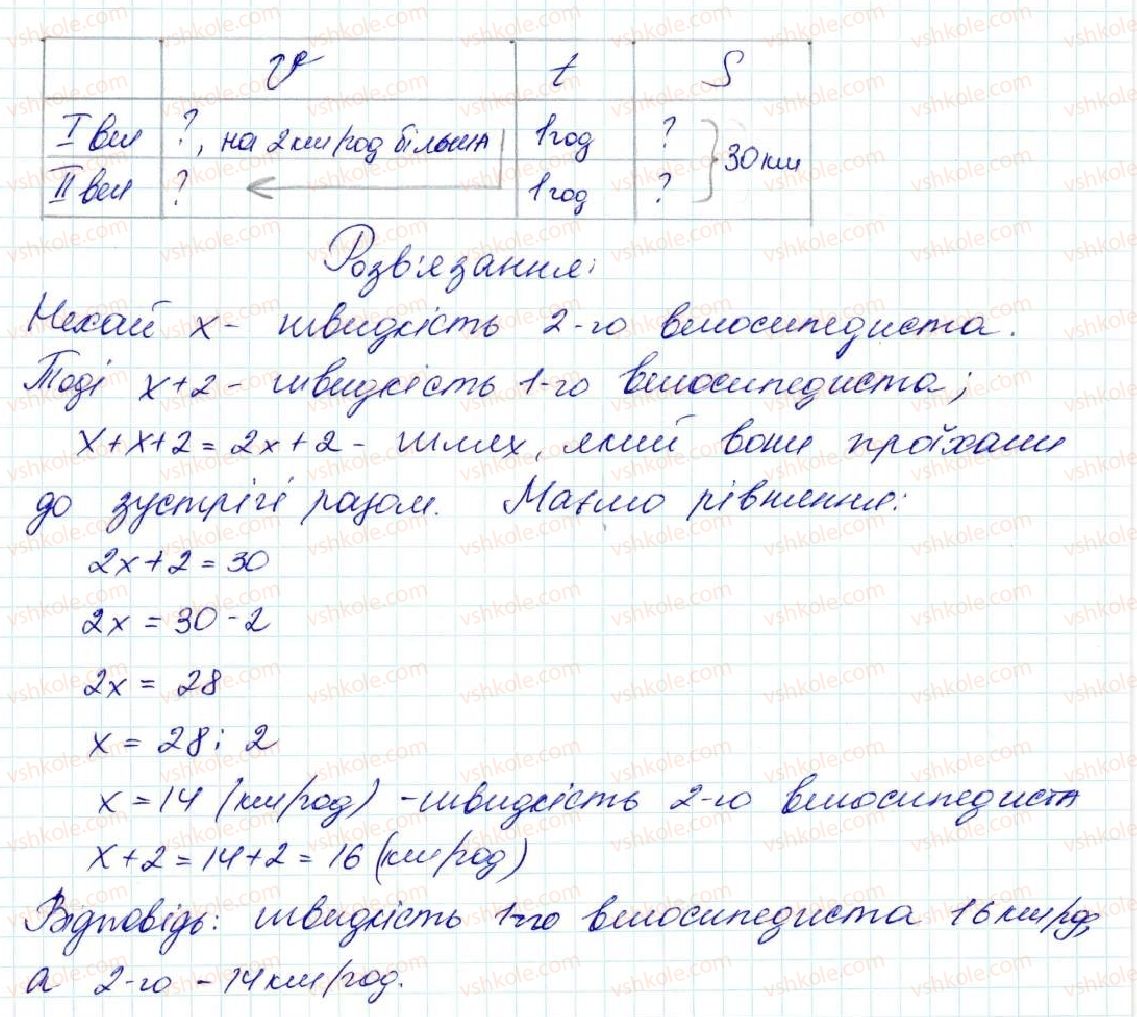 v t S
I вел ?, на 2 км/год більша 1 год ?
30 км
II вел ? 1 год ?
Розв'язання:
Нехай x - швидкість 2-го велосипедиста.
Тоді x+2 - швидкість 1-го велосипедиста;
x+x+2=2x+2 - шлях, який вони проїхали
до зустрічі разом. Маємо рівняння:
2x+2=30
2x = 30-2
2x = 28
x = 28 : 2
x = 14 (км/год) - швидкість 2-го велосипедиста
x+2=14+2=16 (км/год)
Відповідь: швидкість 1-го велосипедиста 16 км/год,
а 2-го - 14 км/год.
vshkole.com